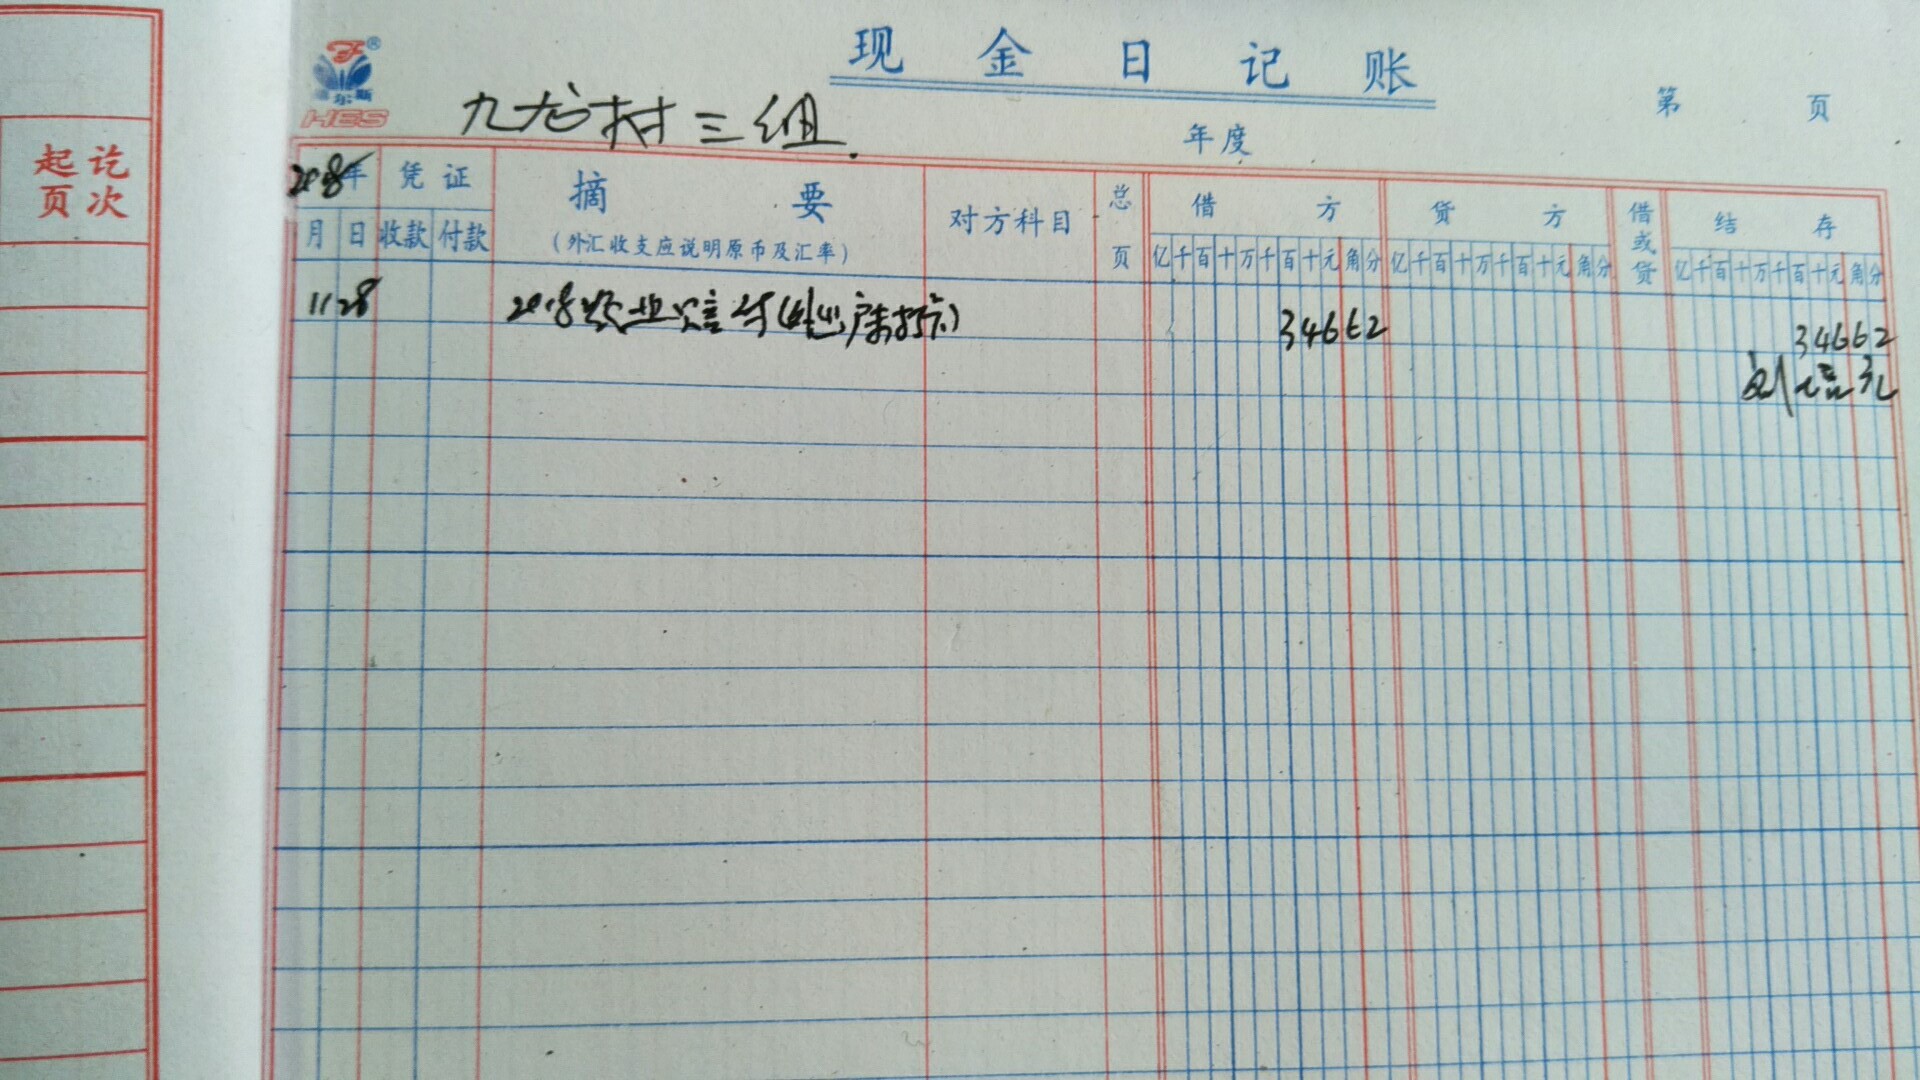 现金日记账
HES
九龙村三组
年度
第 页
起讫
页次
2018年 凭证 摘要 对方科目 总页 借方 贷方 借或贷 结存
月 日 收款 付款 (外汇收支应说明原币及汇率) 亿千百十万千百十元角分 亿千百十万千百十元角分 亿千百十万千百十元角分
11 28 2018 34662 34662